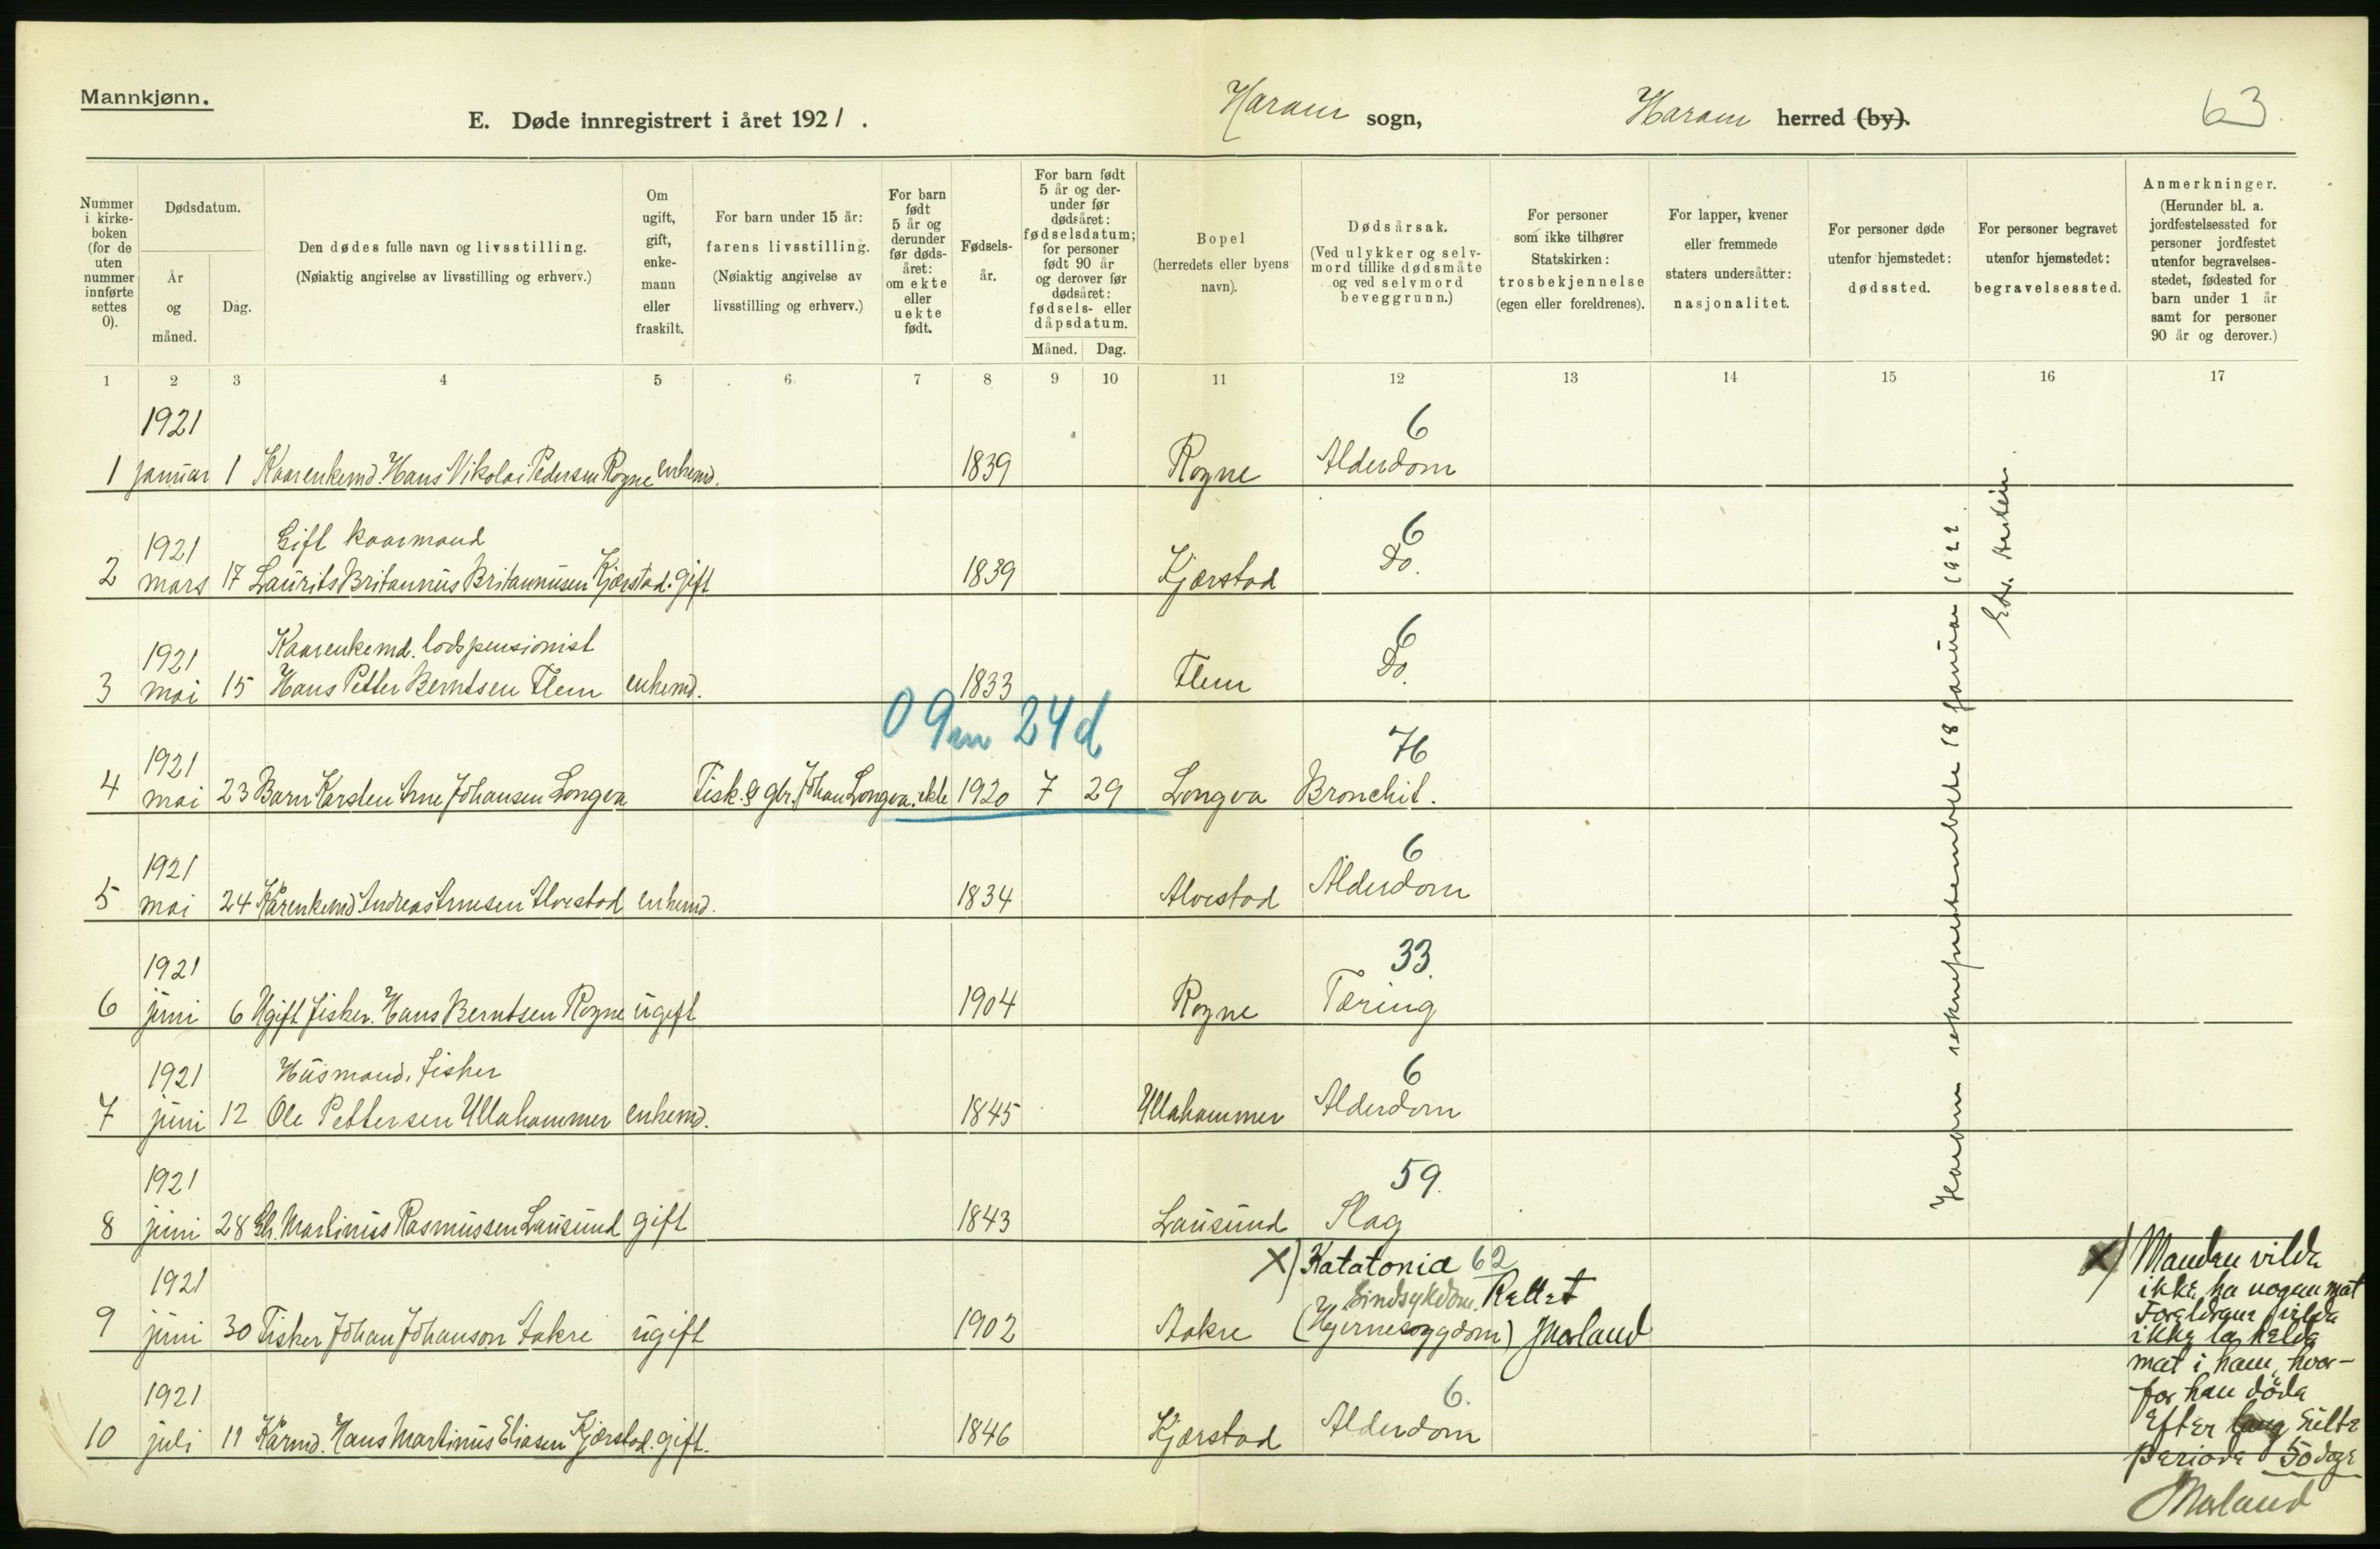 Mannkjønn.
E. Døde innregistrert i året 1921.
Haram sogn,
Haram herred (by).
63
Nummer i kirke-boken (for de uten nummer innførte settes 0).
Dødsdatum.
År og måned.
Dag.
Den dødes fulle navn og livsstilling.
(Nøiaktig angivelse av livsstilling og erhverv.)
Om ugift, gift, enke-mann eller fraskilt.
For barn under 15 år: farens livsstilling.
(Nøiaktig angivelse av livsstilling og erhverv.)
For barn født 5 år og derunder før døds-året: om ekte eller uekte født.
Fødsels-år.
For barn født 5 år og der-under før dødsåret: fødselsdatum; for personer født 90 år og derover før dødsåret: fødsels- eller dåpsdatum.
Måned. Dag.
Bopel
(herredets eller byens navn).
Dødsårsak.
(Ved ulykker og selv-mord tillike dødsmåte og ved selvmord beveggrunn.)
For personer som ikke tilhører Statskirken: trosbekjennelse
(egen eller foreldrenes).
For lapper, kvener eller fremmede staters undersåtter: nasjonalitet.
For personer døde utenfor hjemstedet: dødssted.
For personer begravet utenfor hjemstedet: begravelsessted.
Anmerkninger.
(Herunder bl. a. jordfestelsessted for personer jordfestet utenfor begravelses-stedet, fødested for barn under 1 år samt for personer 90 år og derover.)
1 2 3 4 5 6 7 8 9 10 11 12 13 14 15 16 17
1921 6
1 januar 1 Kaarenkemd. Hans Nikolai Pedersen Rogne enkemd. 1839 Rogne Alderdom
1921 Gift kaarmand 6
2 mars 17 Laurits Britannus Britannusen Kjærstad. gift 1839 Kjærstad Do.
1921 Kaarenkemd. lodspensionist 6
3 mai 15 Hans Petter Berntsen Flem enkemd. 1833 Flem Do.
0 9m 24d
1921 76
4 mai 23 Barn Karsten Arne Johansen Longva Fisk. & gbr. Johan Longva. ekte 1920 7 29 Longva Bronchit.
1921 6
5 mai 24 Kårenkemd Andreas Arnesen Alvestad enkemd. 1834 Alvestad Alderdom
1921 33.
6 juni 6 Ugift fisker. Hans Berntsen Rogne ugift 1904 Rogne Tæring
1921 Husmand, fisker 6
7 juni 12 Ole Pettersen Ullahammer enkemd. 1845 Ullahammer Alderdom
1921 59.
8 juni 28 Martinus Rasmussen Lausund gift 1843 Lausund Slag
1921 X) Katatonia 62
Sindsykdom. Rettet
9 juni 30 Fisker Johan Johanson Aakre ugift 1902 Aakre (Hjernesygdom) Moland
1921 6.
10 juli 11 Kårmd. Hans Martinus Eliasen Kjærstad. gift. 1846 Kjærstad Alderdom
Haram sokneprestembede 18 januar 1922
X) Manden vilde
ikke ha nogen mat
Forældrene vilde
ikke la helde
mat i ham, hvor-
for han döde
Efter lang sulte
periode 50 dage
Moland